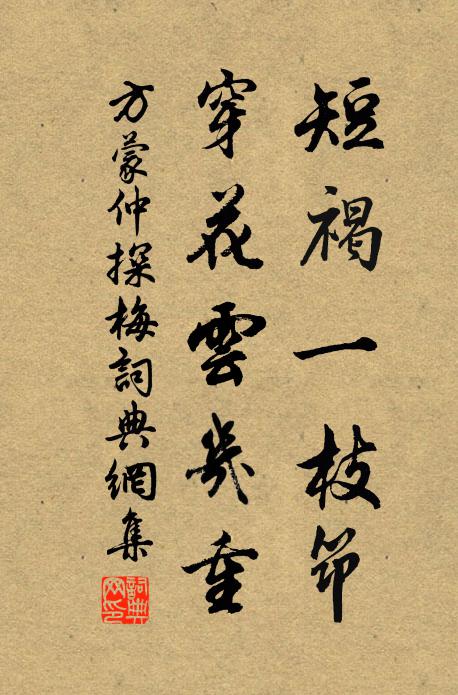 短褐一枝筇
穿花雲幾重
方蒙仲探梅詞典網集
詞典网印